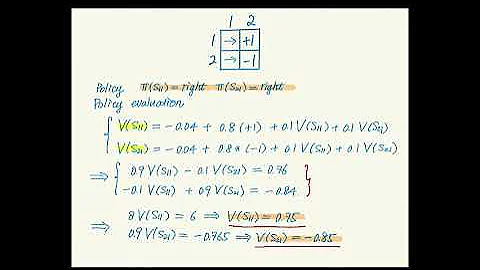 1 2
1 → +1
2 → -1
Policy π(S₁₁)=right π(S₂₁)=right
Policy evaluation
V(S₁₁) = -0.04 + 0.8 (+1) + 0.1 V(S₁₁) + 0.1 V(S₂₁)
V(S₂₁) = -0.04 + 0.8 * (-1) + 0.1 V(S₁₁) + 0.1 V(S₂₁)
⇒ { 0.9 V(S₁₁) - 0.1 V(S₂₁) = 0.76
-0.1 V(S₁₁) + 0.9 V(S₂₁) = -0.84 }
⇒ 8 V(S₁₁) = 6 ⇒ V(S₁₁) = 0.75
0.9 V(S₂₁) = -0.765 ⇒ V(S₂₁) = -0.85